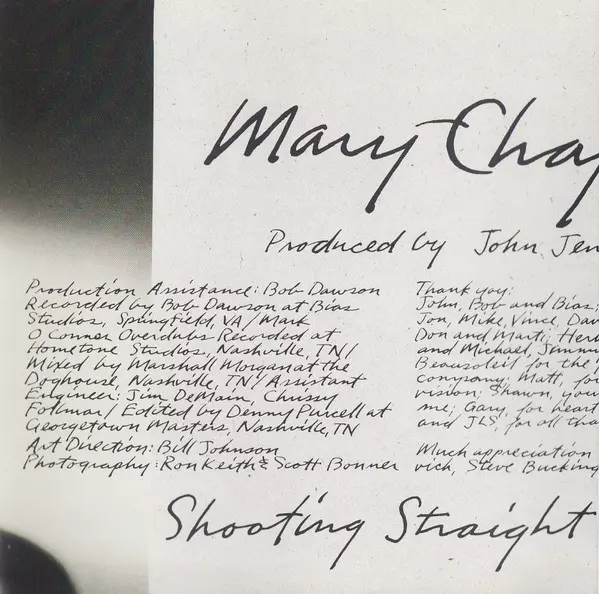 Mary Chap
Produced by John Jen
Production Assistance: Bob Dawson
Recorded by Bob Dawson at Bias
Studios, Springfield, VA / Mark
O'Connor Overdubs Recorded at
Hometone Studios, Nashville, TN /
Mixed by Marshall Morgan at the
Doghouse, Nashville, TN / Assistant
Engineer: Jim DeMain, Chrissy
Follmar / Edited by Denny Purcell at
Georgetown Masters, Nashville, TN
Art Direction: Bill Johnson
Photography: Ron Keith & Scott Bonner
Thank you:
John, Bob and Bias;
Jon, Mike, Vince, Dav
Don and Marti, Herb
and Michael, Jimm
Beausoleil for the
Matt, for
vision; Shawn, you
me; Gary, for heart
and JLS, for all tha
Much appreciation
vich, Steve Bucking
Shooting Straight